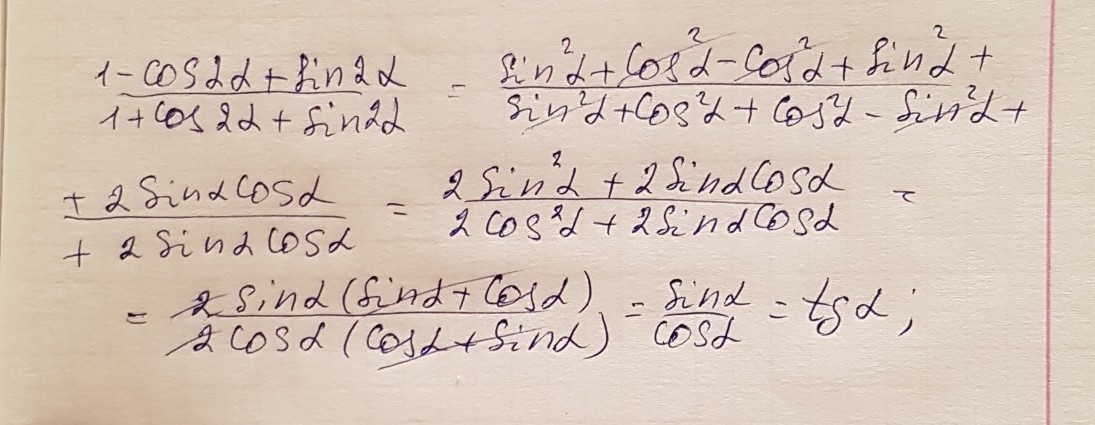 (1-cos2α+sin2α)/(1+cos2α+sin2α) = (sin²α+cos²α-cos²α+sin²α+)/(sin²α+cos²α+cos²α-sin²α+)
(+2sinαcosα)/(+2sinαcosα) = (2sin²α+2sinαcosα)/(2cos²α+2sinαcosα) =
= (2sinα(sinα+cosα))/(2cosα(cosα+sinα)) = sinα/cosα = tgα;